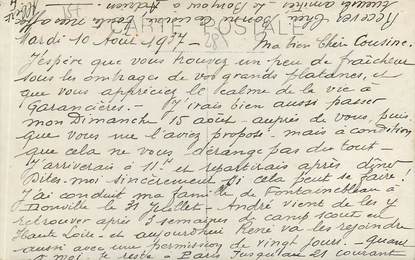 CARTE POSTALE
Mardi 10 Août 1937 - Ma bien Chère Cousine.
J'espère que vous trouvez un peu de fraîcheur
sous les ombrages de vos grands platanes, et
que vous appréciez le calme de la vie à
Garancières. - J'irais bien aussi passer
mon Dimanche 15 août auprès de vous, puis
que vous me l'aviez proposé. mais à condition
que cela ne vous dérange pas du tout -
J'arriverais à 11h et repartirais après dîner
Dites-moi sincèrement si cela peut se faire !
J'ai conduit ma famille de Fontainebleau à
le 31 Juillet - André vient de les y
retrouver après 3 semaines de camp scout en
Haute Loire - et aujourd'hui René va les rejoindre
aussi avec une permission de vingt jours. - Quant
à moi, je reste à Paris jusqu'au 21 courant
Recevez Chère Cousine